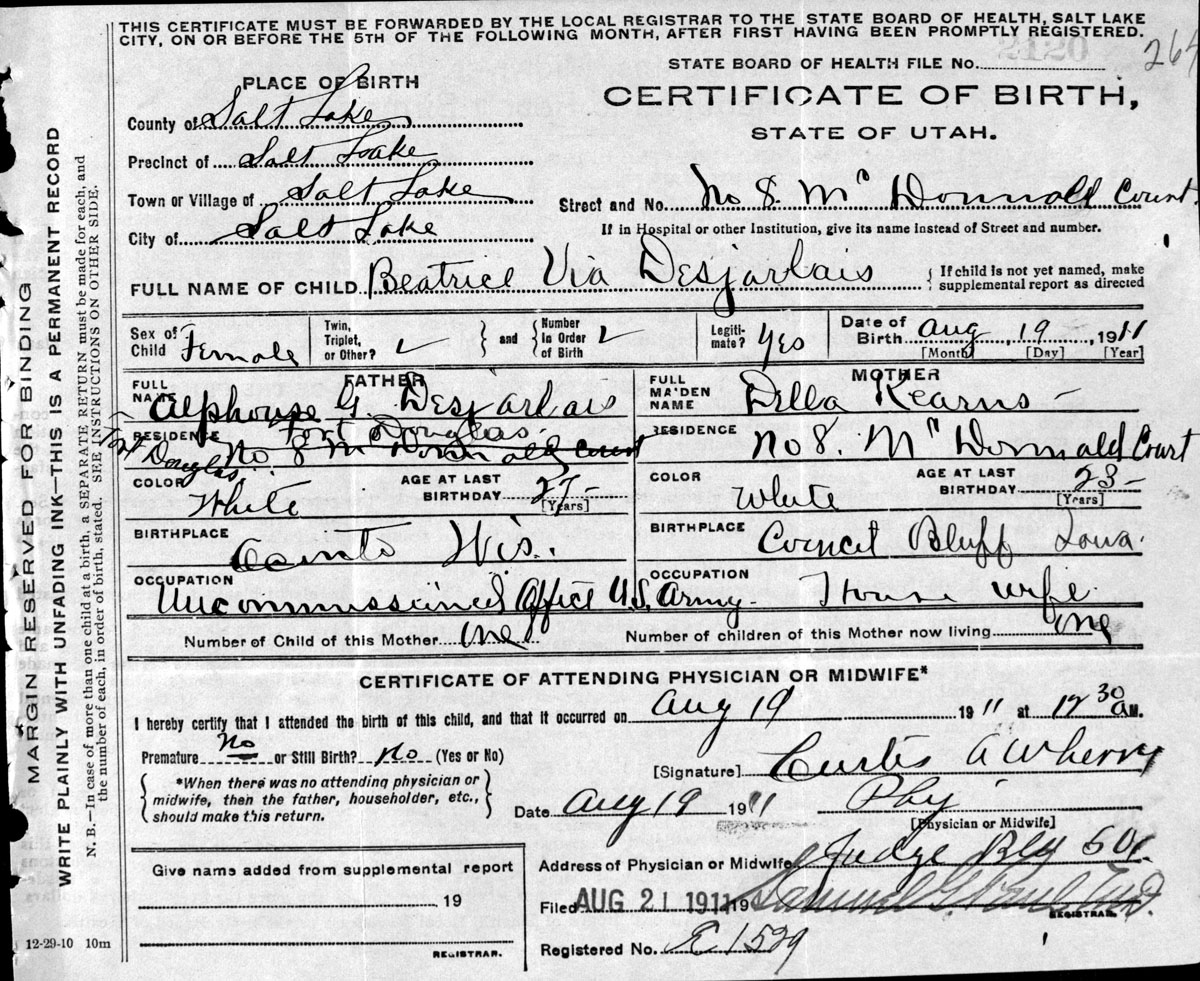 THIS CERTIFICATE MUST BE FORWARDED BY THE LOCAL REGISTRAR TO THE STATE BOARD OF HEALTH, SALT LAKE
CITY, ON OR BEFORE THE 5TH OF THE FOLLOWING MONTH, AFTER FIRST HAVING BEEN PROMPTLY REGISTERED.
2120
264
STATE BOARD OF HEALTH FILE No.
PLACE OF BIRTH
CERTIFICATE OF BIRTH,
STATE OF UTAH.
County of Salt Lake
Precinct of Salt Lake
Town or Village of Salt Lake
Street and No. No 8. Mc Donnald Court.
City of Salt Lake
If in Hospital or other Institution, give its name instead of Street and number.
FULL NAME OF CHILD Beatrice Via Desjarlais
If child is not yet named, make
supplemental report as directed
Sex of Child Female
Twin, Triplet, or Other?
and
Number in Order of Birth
Legitimate? Yes
Date of Birth Aug, 19, 1911
[Month] [Day] [Year]
FATHER
FULL NAME Alphouse G. Desjarlais
MOTHER
FULL MAIDEN NAME Della Kearns
RESIDENCE Fort Douglas.
Fort Douglas. No 8 Mc Donnald Court
RESIDENCE No 8. Mc Donnald Court
COLOR White
AGE AT LAST BIRTHDAY 27
[Years]
COLOR White
AGE AT LAST BIRTHDAY 23
[Years]
BIRTHPLACE Wis.
BIRTHPLACE Council Bluff Iowa.
OCCUPATION Uncommissioned Office U.S. Army.
OCCUPATION House wife.
Number of Child of this Mother one
Number of children of this Mother now living one
CERTIFICATE OF ATTENDING PHYSICIAN OR MIDWIFE*
I hereby certify that I attended the birth of this child, and that it occurred on Aug 19 1911 at 12 30 a M.
Premature No or Still Birth? No (Yes or No)
*When there was no attending physician or
midwife, then the father, householder, etc.,
should make this return.
[Signature] Curtis A Wherry
Date Aug 19 1911 Phy
[Physician or Midwife]
Address of Physician or Midwife Judge Blg
Filed AUG 21 1911 19
REGISTRAR.
Registered No. 1529
Give name added from supplemental report
19
REGISTRAR.
12-29-10 10m
MARGIN RESERVED FOR BINDING
WRITE PLAINLY WITH UNFADING INK—THIS IS A PERMANENT RECORD
N. B.—In case of more than one child at a birth, a SEPARATE RETURN must be made for each, and
the number of each, in order of birth, stated. SEE INSTRUCTIONS ON OTHER SIDE.